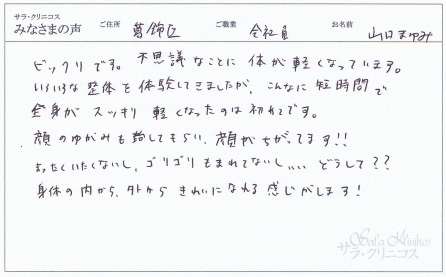 サラ・クリニコス
みなさまの声 ご住所 葛飾区 ご職業 会社員 お名前 山口まゆみ
ビックリです。不思議なことに体が軽くなっています。
いろいろな整体を体験してきましたが、こんなに短時間で
全身がスッキリ軽くなったのは初めてです。
顔のゆがみも治してもらい、顔がちがってます!!
まったくいたくないし、ゴリゴリもまれてないし、、、どうして??
身体の内から、外からきれいになれる感じがします!
Sala Klinikos
サラ・クリニコス